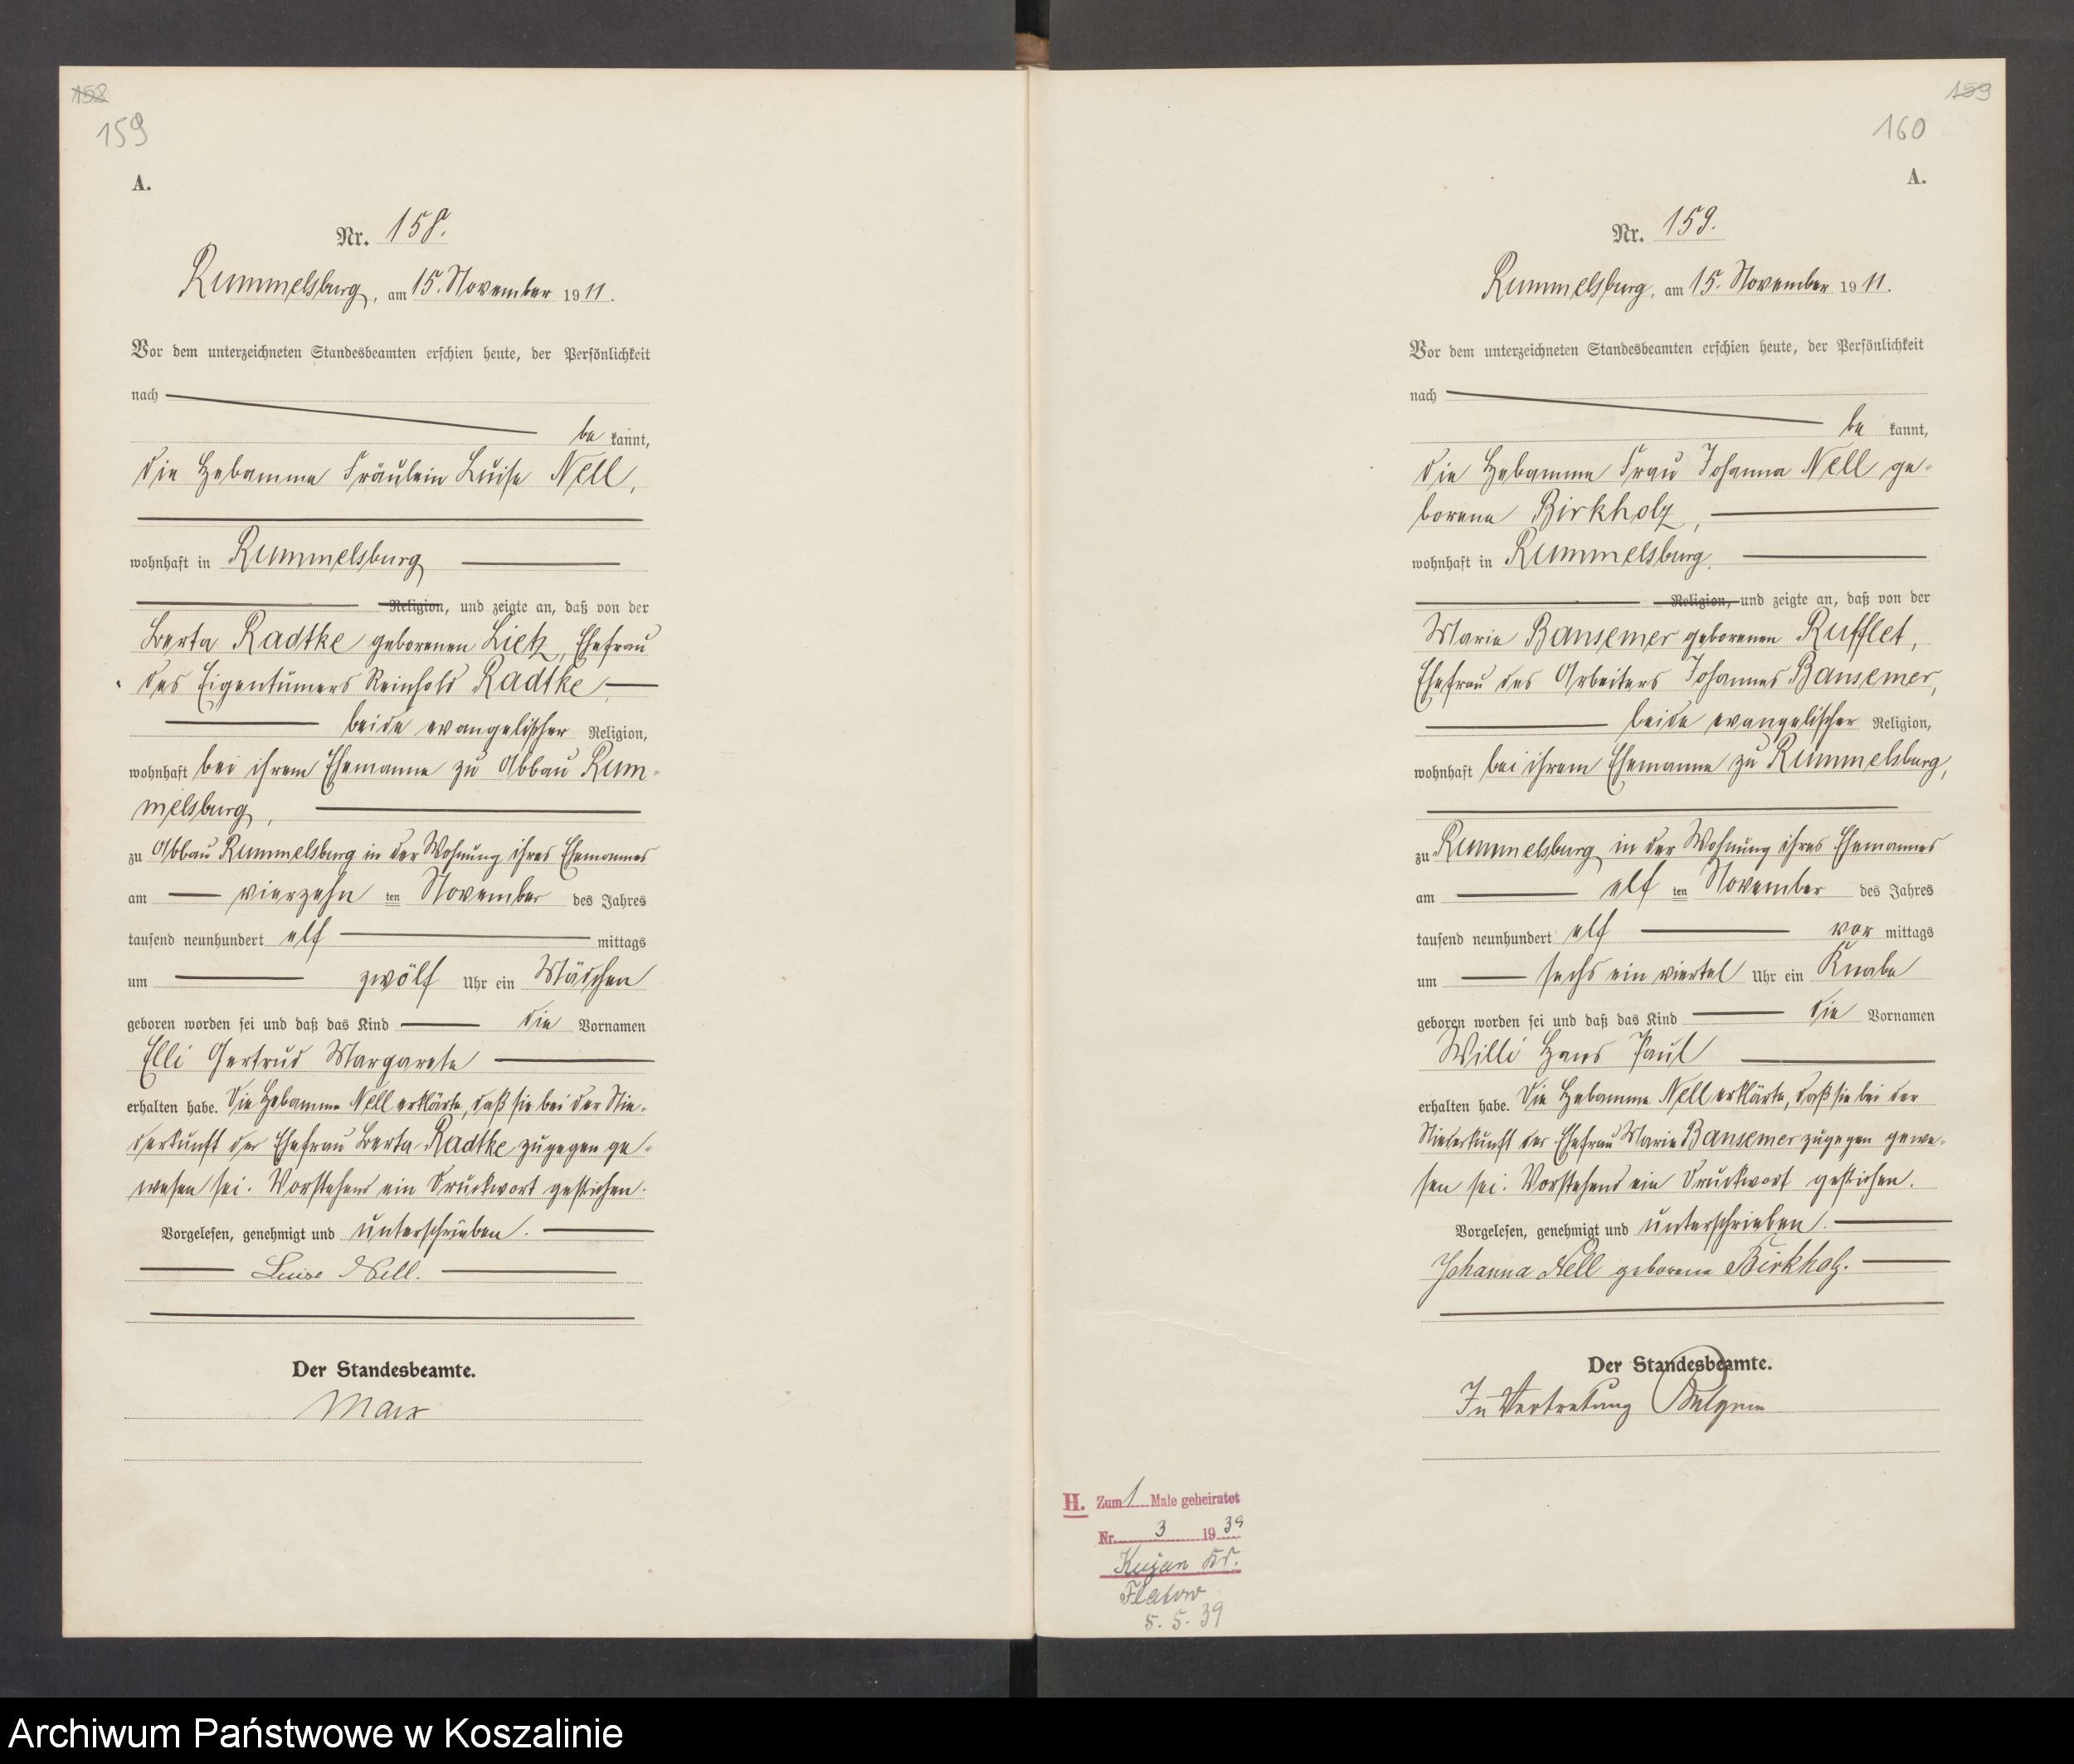 158
159
A.
Nr. 158.
Rummelsburg, am 15. November 1911.
Vor dem unterzeichneten Standesbeamten erschien heute, der Persönlichkeit
nach
be kannt,
die Hebamme Fräulein Luise Nell,
wohnhaft in Rummelsburg
Religion, und zeigte an, daß von der
Berta Radtke geborenen Lietz, Ehefrau
des Eigentümers Reinhold Radtke
beide evangelischer Religion,
wohnhaft bei ihrem Ehemanne zu Abbau Rum-
melsburg,
zu Abbau Rummelsburg in der Wohnung ihres Ehemannes
am vierzehn ten November des Jahres
tausend neunhundert elf mittags
um zwölf Uhr ein Mädchen
geboren worden sei und daß das Kind die Vornamen
Elli Gertrud Margarete
erhalten habe. Die Hebamme Nell erklärte, daß sie bei der Nie-
derkunft der Ehefrau Berta Radtke zugegen ge-
wesen sei. Vorstehend ein Druckwort gestrichen.
Vorgelesen, genehmigt und unterschrieben.
Luise Nell.
Der Standesbeamte.
Marx
159
160
A.
Nr. 159.
Rummelsburg, am 15. November 1911.
Vor dem unterzeichneten Standesbeamten erschien heute, der Persönlichkeit
nach
be kannt,
die Hebamme Frau Johanna Nell ge-
borene Birkholz,
wohnhaft in Rummelsburg,
Religion, und zeigte an, daß von der
Marie Bansemer geborenen Rufflet,
Ehefrau des Arbeiters Johannes Bansemer,
beide evangelischer Religion,
wohnhaft bei ihrem Ehemanne zu Rummelsburg,
zu Rummelsburg in der Wohnung ihres Ehemannes
am elf ten November des Jahres
tausend neunhundert elf vor mittags
um sechs ein viertel Uhr ein Knabe
geboren worden sei und daß das Kind die Vornamen
Willi Hans Paul
erhalten habe. Die Hebamme Nell erklärte, daß sie bei der
Niederkunft der Ehefrau Marie Bansemer zugegen gewe-
sen sei. Vorstehend ein Druckwort gestrichen.
Vorgelesen, genehmigt und unterschrieben.
Johanna Nell geborene Birkholz.
Der Standesbeamte.
In Vertretung
H. Zum 1 Male geheiratet
Nr. 3 1939
Kujan Kr.
Flatow
5. 5. 39
Archiwum Państwowe w Koszalinie